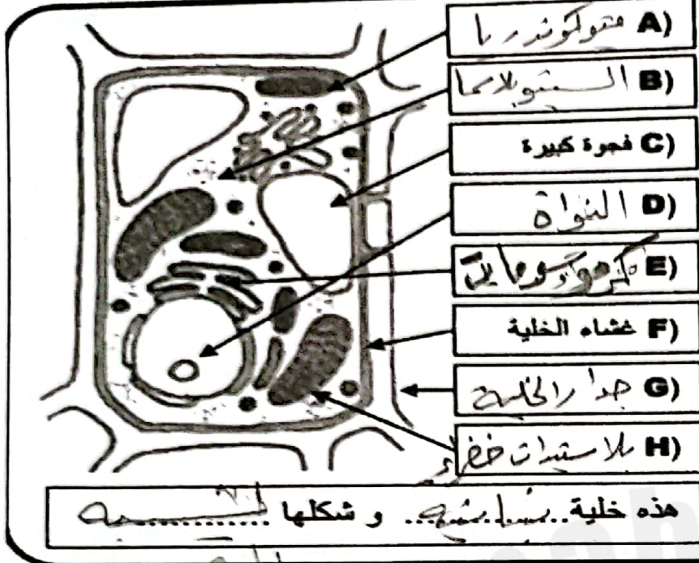 A) متوكوندريا
B) السيتوبلاسما
C) فجوة كبيرة
D) النواة
E)
F) غشاء الخلية
G) جدار الخلية
H) بلاستيدات خضراء
هذه خلية نباتية و شكلها